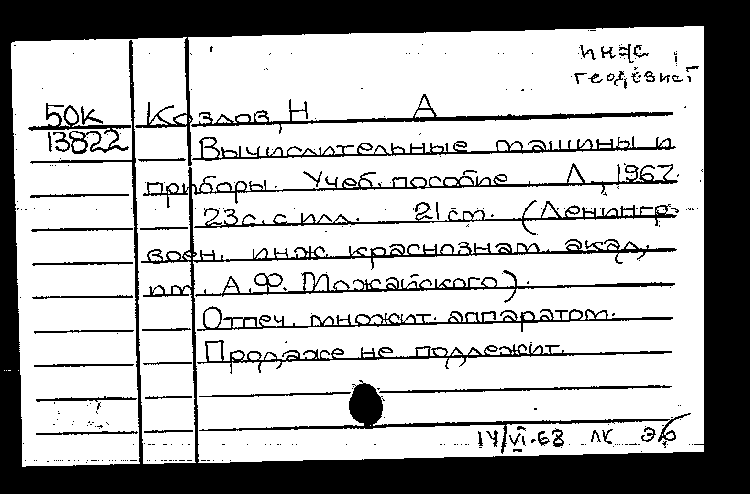 инж
геодезист
50к Козлов, Н А
13822 Вычислительные машины и
приборы. Учеб. пособие Л., 1967.
23 с. с илл. 21 cm. (Ленингр.
воен. инж. краснознам. акад.
им. А.Ф. Можайского).
Отпеч. множит. аппаратом.
Продаже не подлежит.
14/VI-68 ЛК Эб